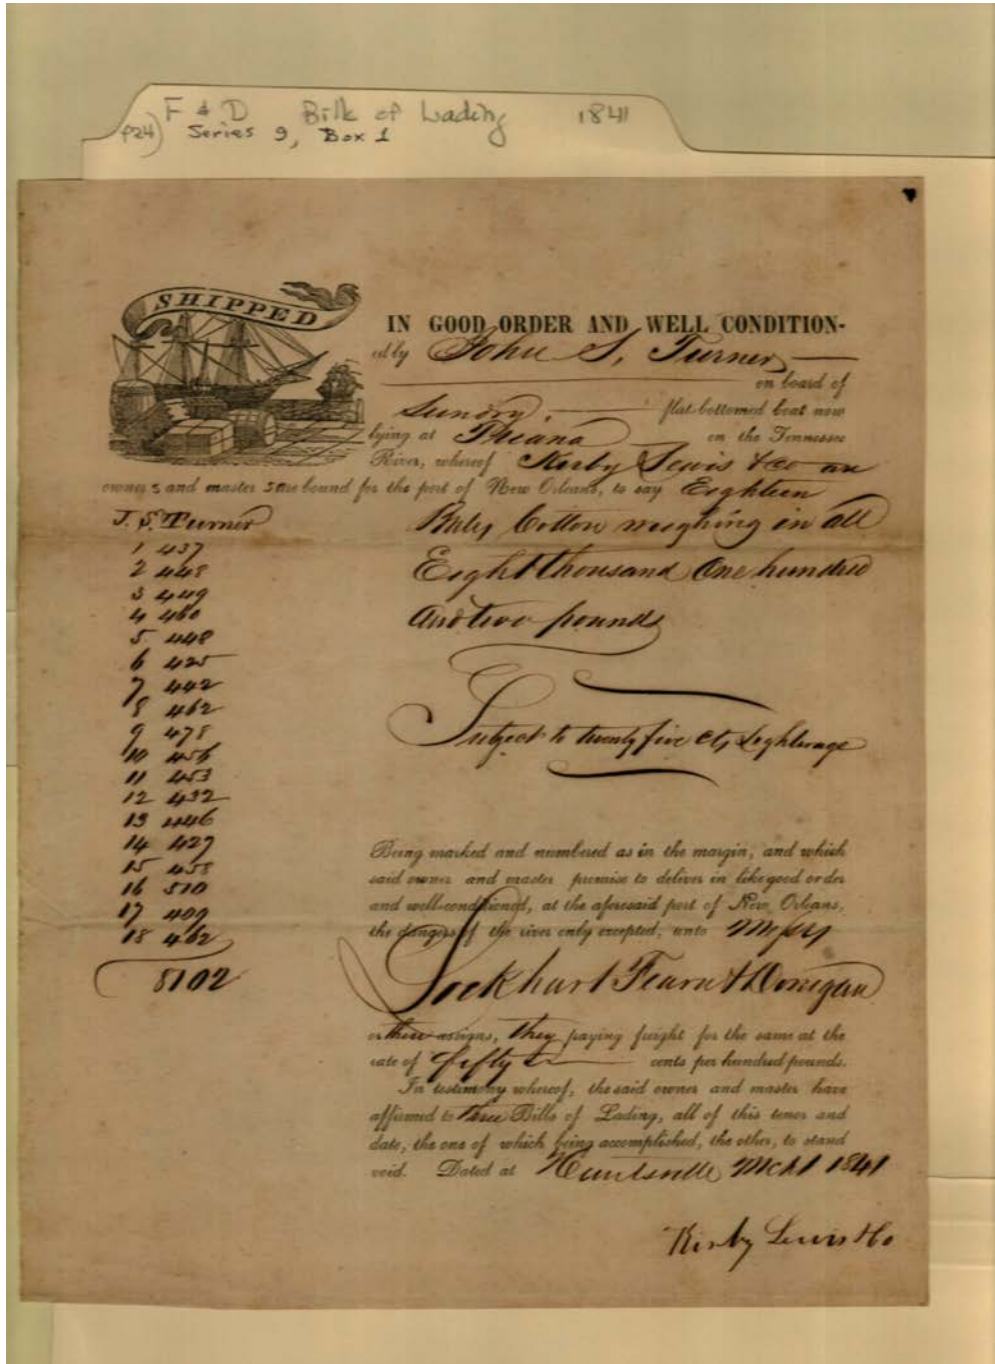 F & D Bills of Lading 1841
P24) Series 9, Box 1
SHIPPED
IN GOOD ORDER AND WELL CONDITION-
ed by John S. Turner
on board of
Sundry flat-bottomed boat now
lying at Triana on the Tennessee
River, whereof Kirby Lewis & Co are
owners and masters are bound for the port of New Orleans, to say Eighteen
Bales Cotton weighing in all
Eight thousand One hundred
And two pounds
Subject to twenty five cts Lighterage
J. S. Turner
1 437
2 448
3 449
4 460
5 448
6 425
7 442
8 462
9 478
10 456
11 453
12 432
13 446
14 427
15 458
16 510
17 409
18 462
8102
Being marked and numbered as in the margin, and which
said owner and master promise to deliver in like good order
and well-conditioned, at the aforesaid port of New Orleans,
the dangers of the river only excepted, unto Messrs
Lockhart Fearn & Donegan
or their assigns, they paying freight for the same at the
rate of fifty cents per hundred pounds.
In testimony whereof, the said owner and master have
affirmed to three Bills of Lading, all of this tenor and
date, the one of which being accomplished, the other, to stand
void. Dated at Huntsville Mch 1 1841
Kirby Lewis & Co